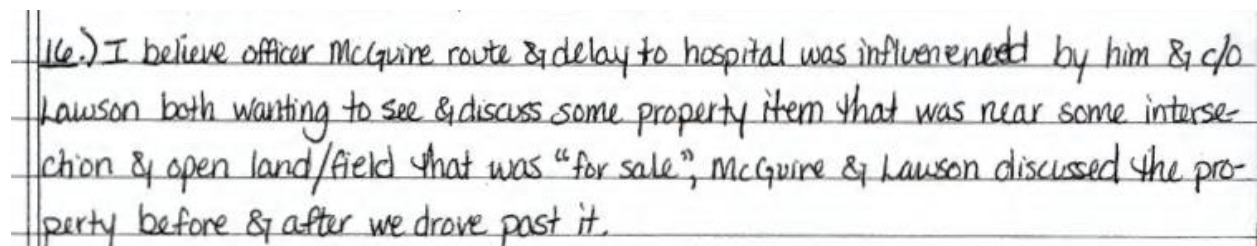 16.) I believe officer McGuire route & delay to hospital was influenened by him & c/o
Lawson both wanting to see & discuss some property item that was near some interse-
ction & open land/field that was "for sale", McGuire & Lawson discussed the pro-
perty before & after we drove past it.